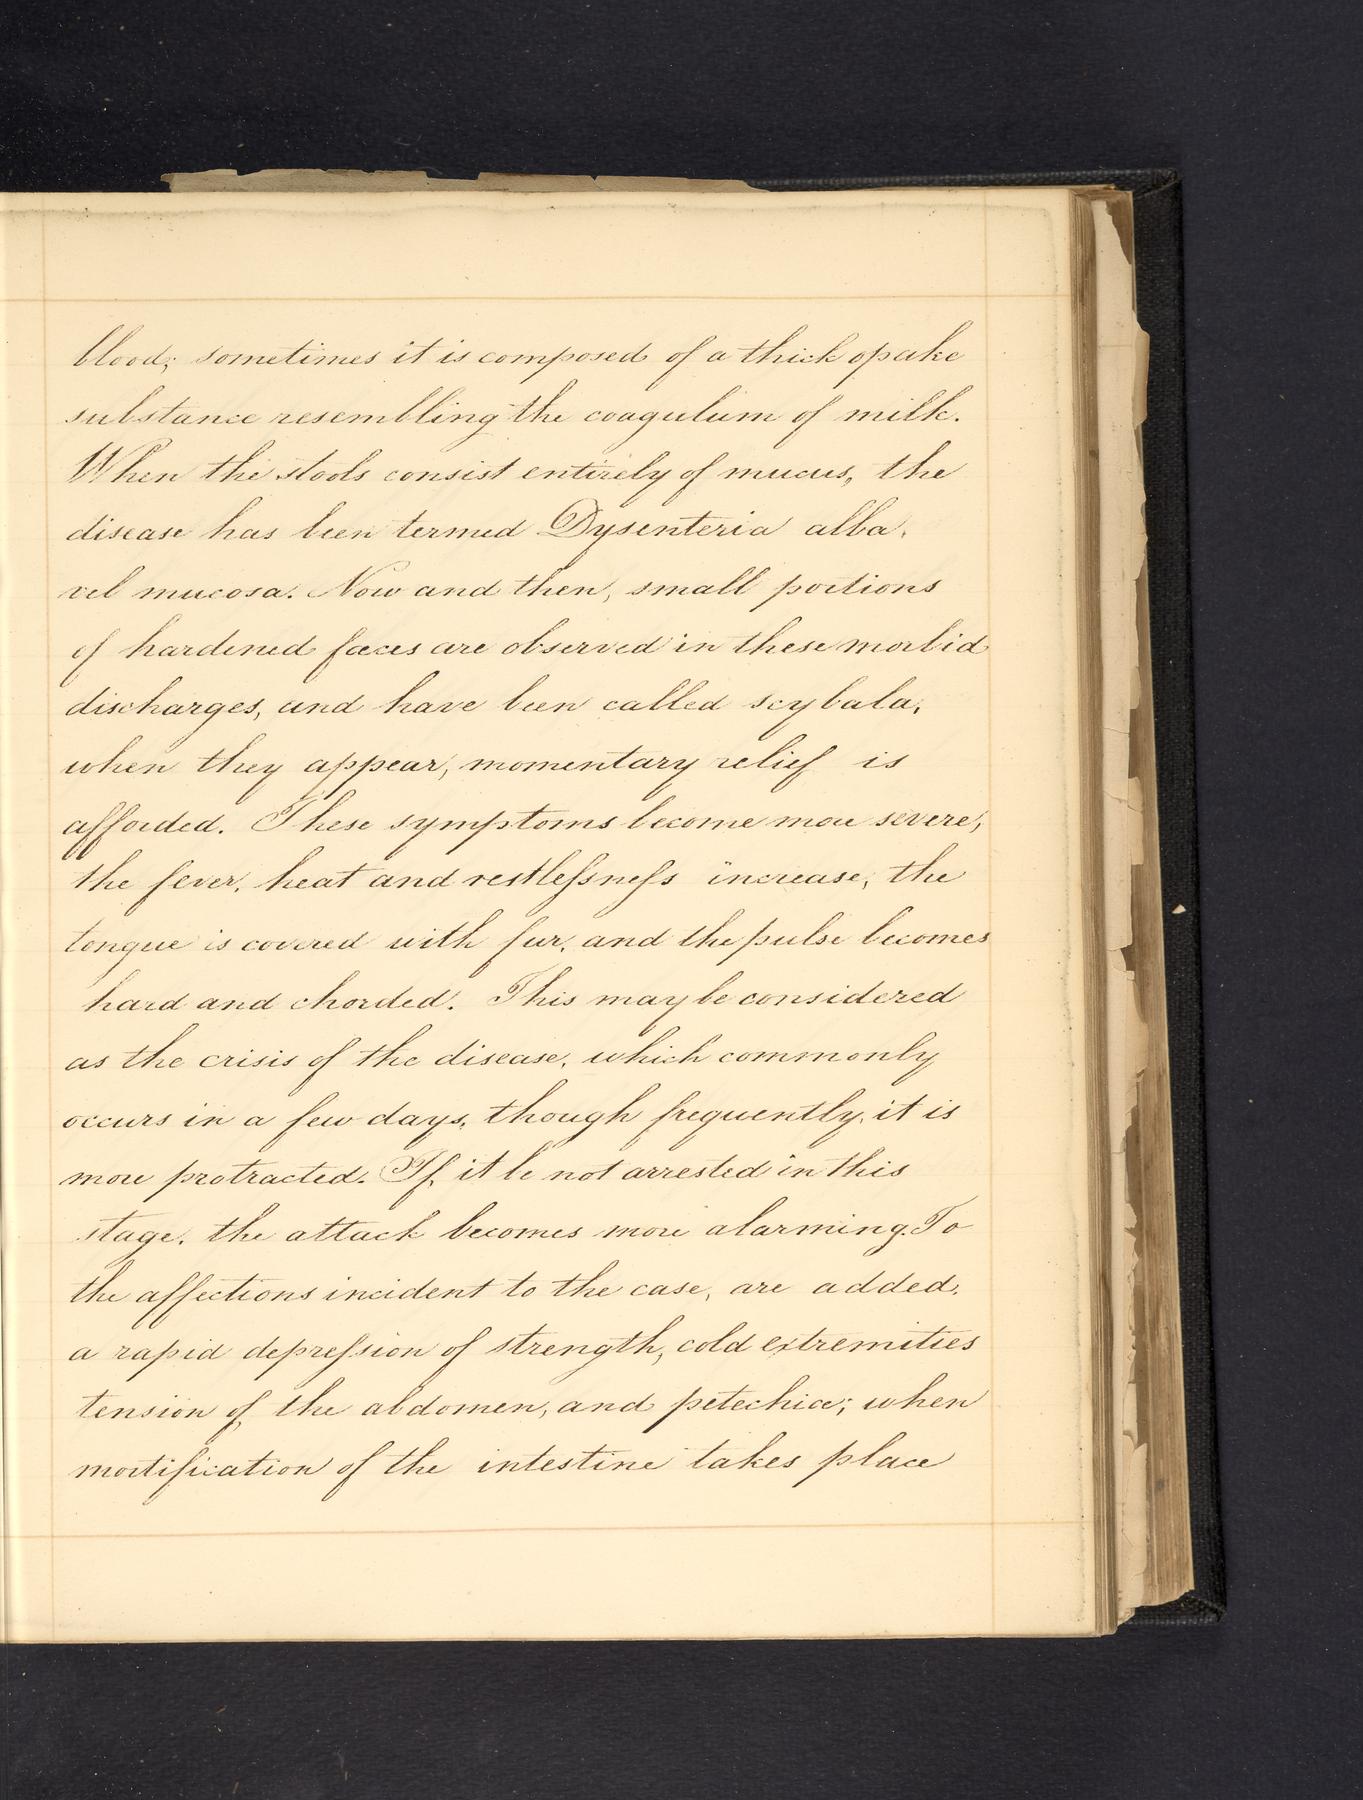 blood; sometimes it is composed of a thick opake
substance resembling the coagulum of milk.
When the stools consist entirely of mucus, the
disease has been termed Dysenteria alba,
vel mucosa. Now and then, small portions
of hardened fæces are observed in these morbid
discharges, and have been called scybala;
when they appear, momentary relief is
afforded. These symptoms become more severe;
the fever, heat and restleſsneſs increase, the
tongue is covered with fur, and the pulse becomes
hard and chorded. This may be considered
as the crisis of the disease, which commonly
occurs in a few days, though frequently, it is
more protracted. If, it be not arrested in this
stage, the attack becomes more alarming. To
the affections incident to the case, are added,
a rapid depreſsion of strength, cold extremities
tension of the abdomen, and petechiæ; when
mortification of the intestine takes place